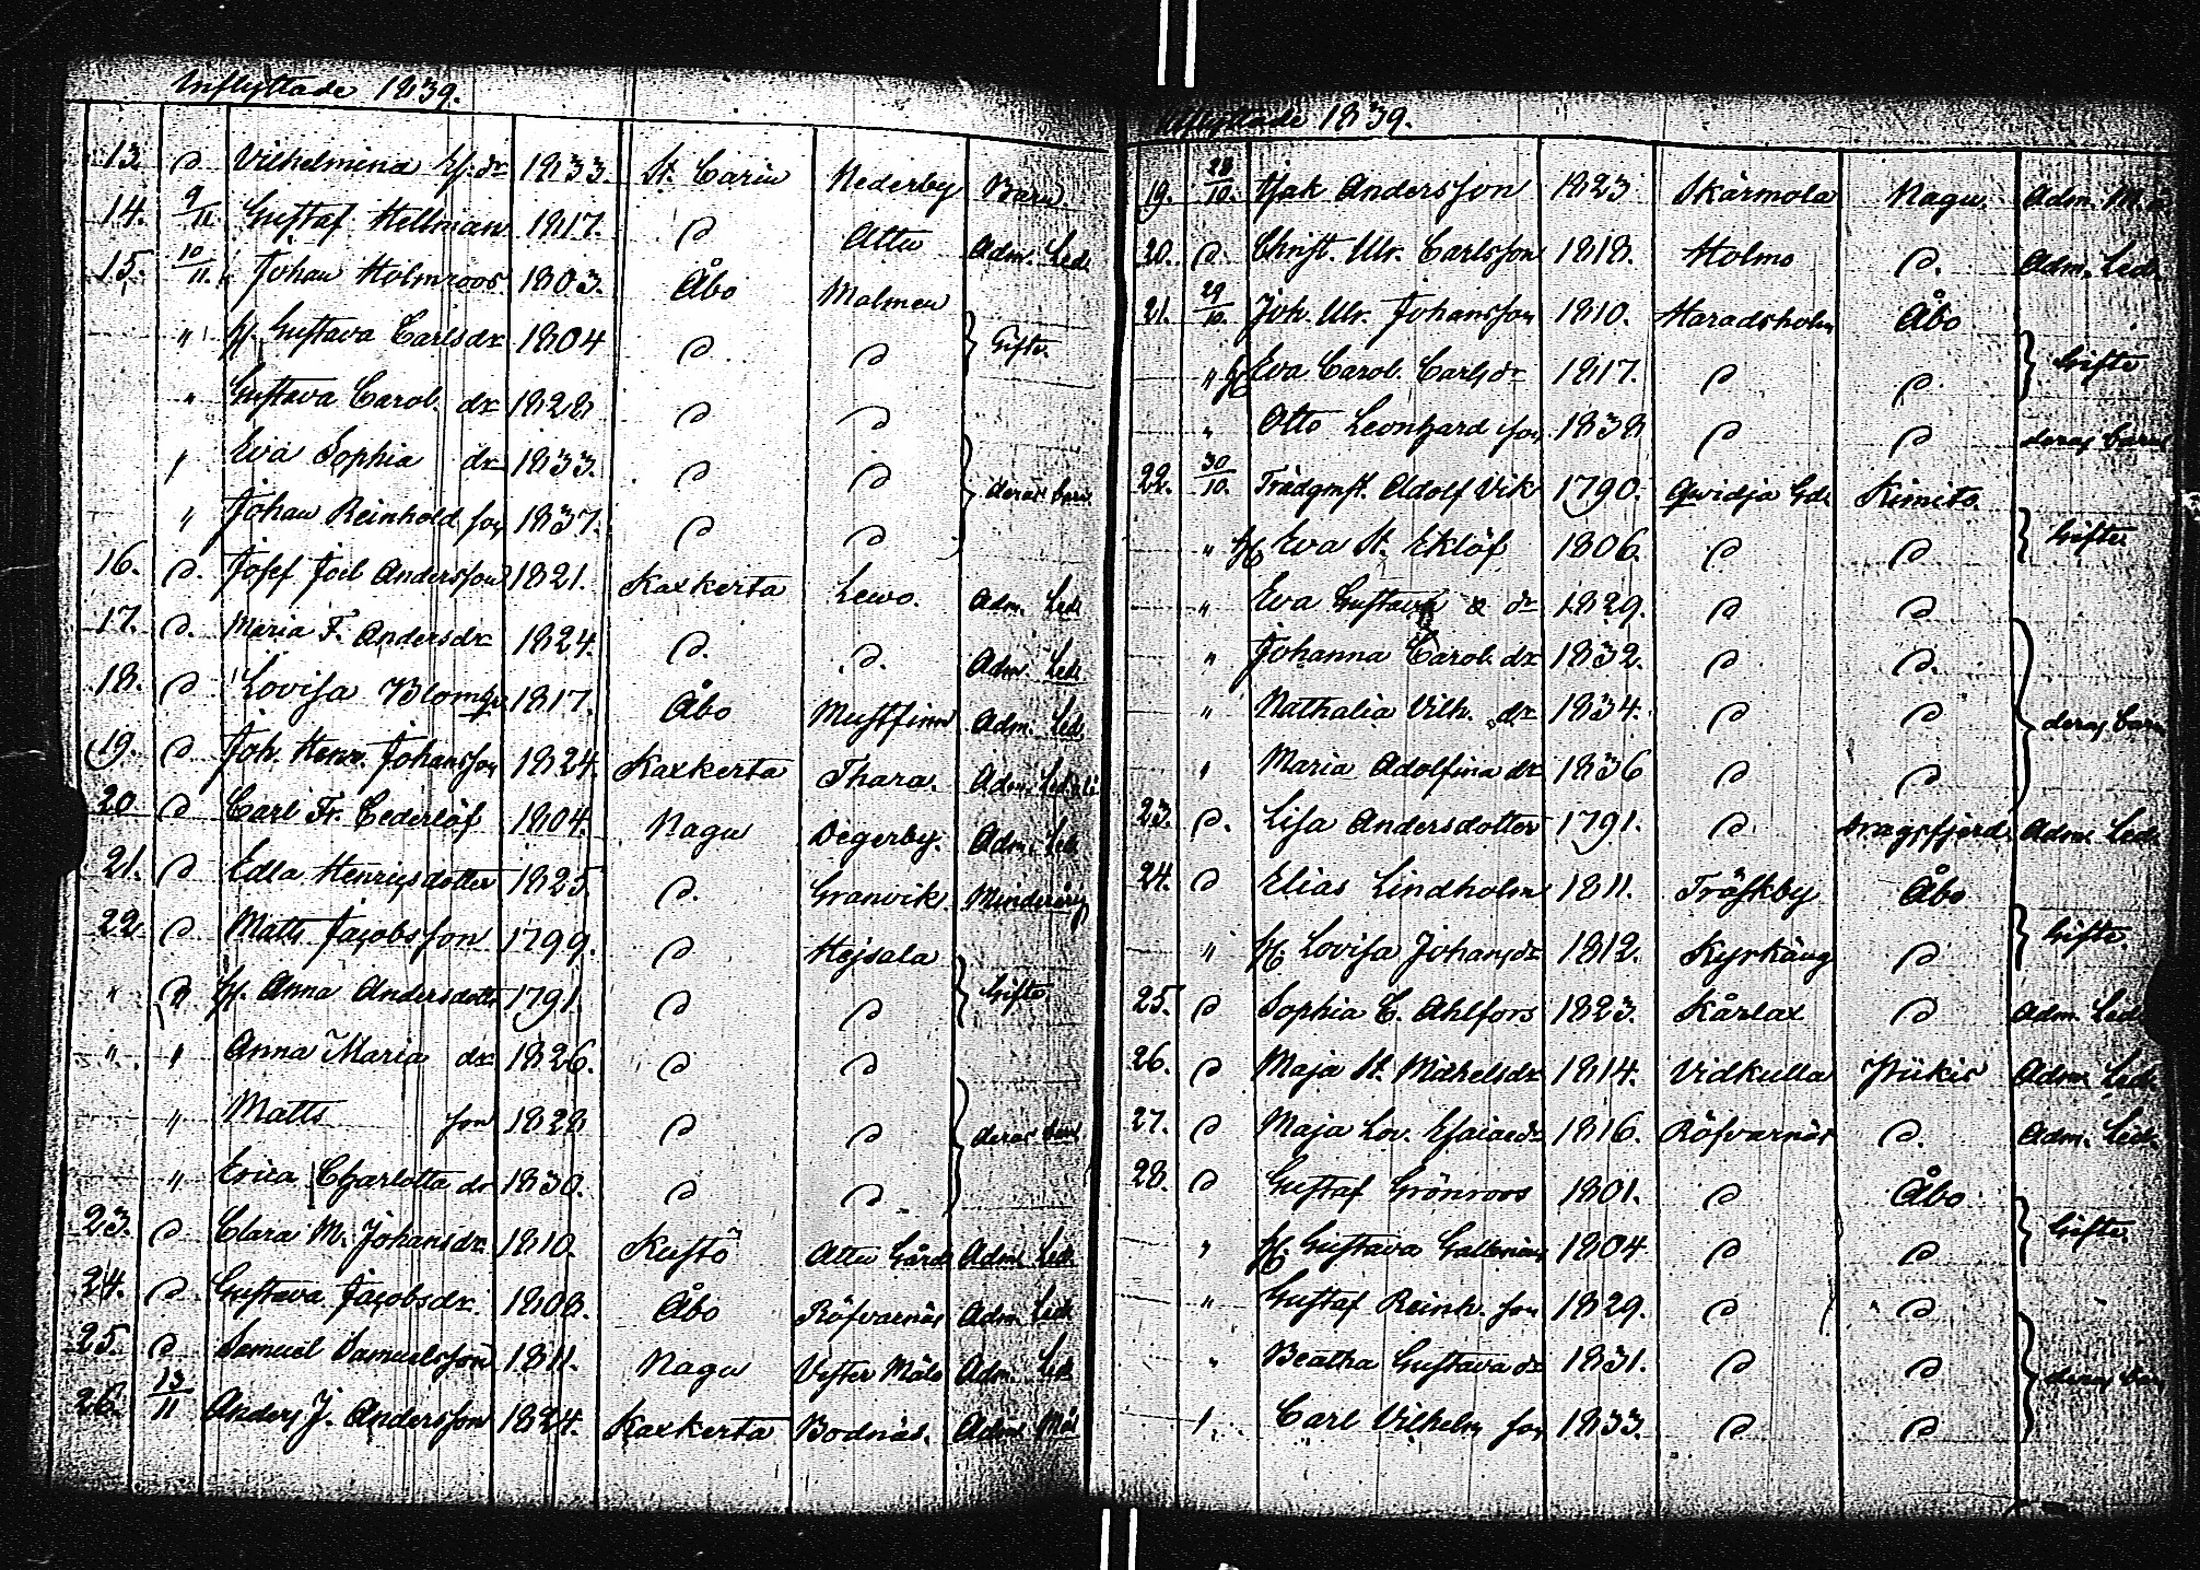 Inflyttade 1839.
13. D. Vilhelmina Hs. dr 1833. St. Carin Nederby Barn.
14. 9/11. Gustaf Hellman 1817. D Attu Adm. Led.
15. 10/11. Johan Holmroos 1803. Åbo Malmen
" H. Gustava Carlsdr 1804 D D } Gifte.
" Gustava Carol. dr 1828 D D
" Eva Sophia dr 1833. D D } deras barn.
" Johan Reinhold son 1837. D D
16. D. Josef Joel Andersson 1821. Kaxkerta Lewo. Adm. Led.
17. D. Maria F. Andersdr 1824. D. D. Adm. Led.
18. D Lovisa 1817. Åbo Mustfinn Adm. Led.
19. D Joh. Henr. Johansson 1824. Kaxkerta Thara. Adm. Led.
20 D Carl Fr. Cederlöf 1804. Nagu Degerby. Adm. Led.
21. D Edla Henricsdotter 1825. D. Granvik. Minderårig
22 D Matts Jacobsson 1799. D Hejsala
" D H. Anna Andersdotter 1791. D D } Gifte
" " Anna Maria dr 1826. D D
" Matts son 1828 D D } deras barn
" Erica Charlotta dr 1830. D D
23. D Clara M. Johansdr. 1810. Kustö Attu Gård Adm. Led.
24. D Gustava Jacobsdr. 1808. Åbo Röfvarnäs Adm. Led.
25. D Samuel Samuelsson 1811. Nagu Vester Mälo Adm. Led.
26. 13/11 Anders J. Andersson 1824. Kaxkerta Bodnäs. Adm.
Utflyttade 1839.
19. 28/10. Isak Andersson 1823 Skärmola Nagu. Adm.
20. D. Christ. Ulr. Carlsson 1818. Holmo D. Adm. Led.
21. 29/10. Joh. Ulr. Johansson 1810. Haradsholm Åbo
" H. Eva Carol. Carlsdr 1817. D D. } Gifte
" Otto Leonhard son 1838 D D deras barn
22. 30/10. Trädgmst. Adolf Vik 1790. Qvidja Gd. Kimito.
" H. Eva St. Eklöf 1806. D D } Gifte.
" Eva Gustava dr 1829. D D
" Johanna Carol. dr 1832. D D.
" Nathalia Vilh. dr 1834. D D } deras barn
" Maria Adolfina dr 1836 D D
23. D. Lisa Andersdotter 1791. D Dragsfjerd. Adm. Led.
24. D Elias Lindholm 1811. Träskby Åbo
" H. Lovisa Johansdr 1812. Kyrkäng D } Gifte
25. D Sophia C. Ahlfors 1823. Kårlax D Adm. Led.
26. D Maja St. Mickelsdr 1814. Vidkulla Piikis Adm. Led.
27. D Maja Lov. Esaiaedr 1816. Röfvarnäs D. Adm. Led.
28. D Gustaf Grönroos 1801. D Åbo
" H. Gustava 1804. D D } Gifte.
" Gustaf Reinh. son 1829. D D
" Beatha Gustava dr 1831. D D } deras barn
" Carl Vilhelm son 1833. D D